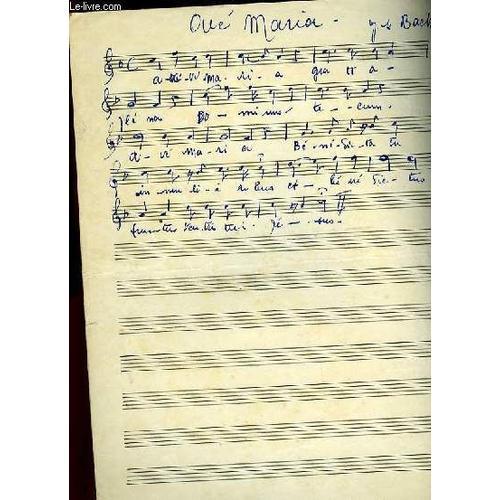 Le-livre.com
Avé Maria - J. S. Bach
a - vé ma - ri - a gra ti a -
plé na Do - mi nus te - cum.
a - vé ma - ri a Bé - né - dic - ta tu
in mu li - é ri bus et bé né dic - tus
fructus ven tris tu i Jé - sus -